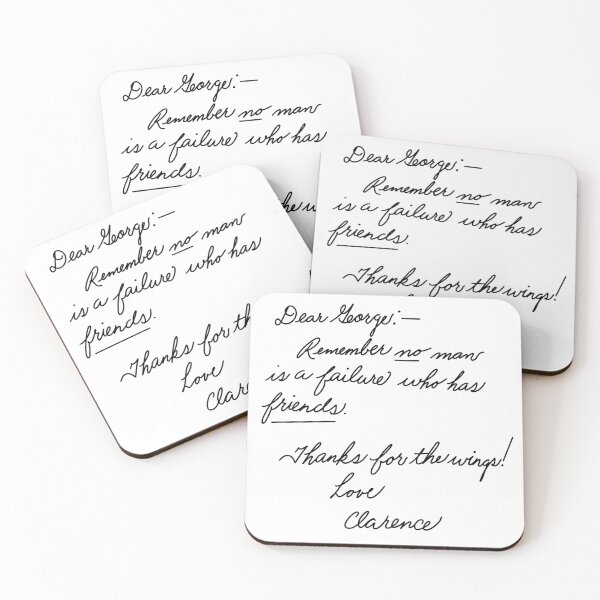 Dear George:—
Remember no man
is a failure who has
friends.
Dear George:—
Remember no man
is a failure who has
friends.
Thanks for the wings!
Dear George:—
Remember no man
is a failure who has
friends.
Thanks for the
Love
Clarence
Dear George:—
Remember no man
is a failure who has
friends.
Thanks for the wings!
Love
Clarence